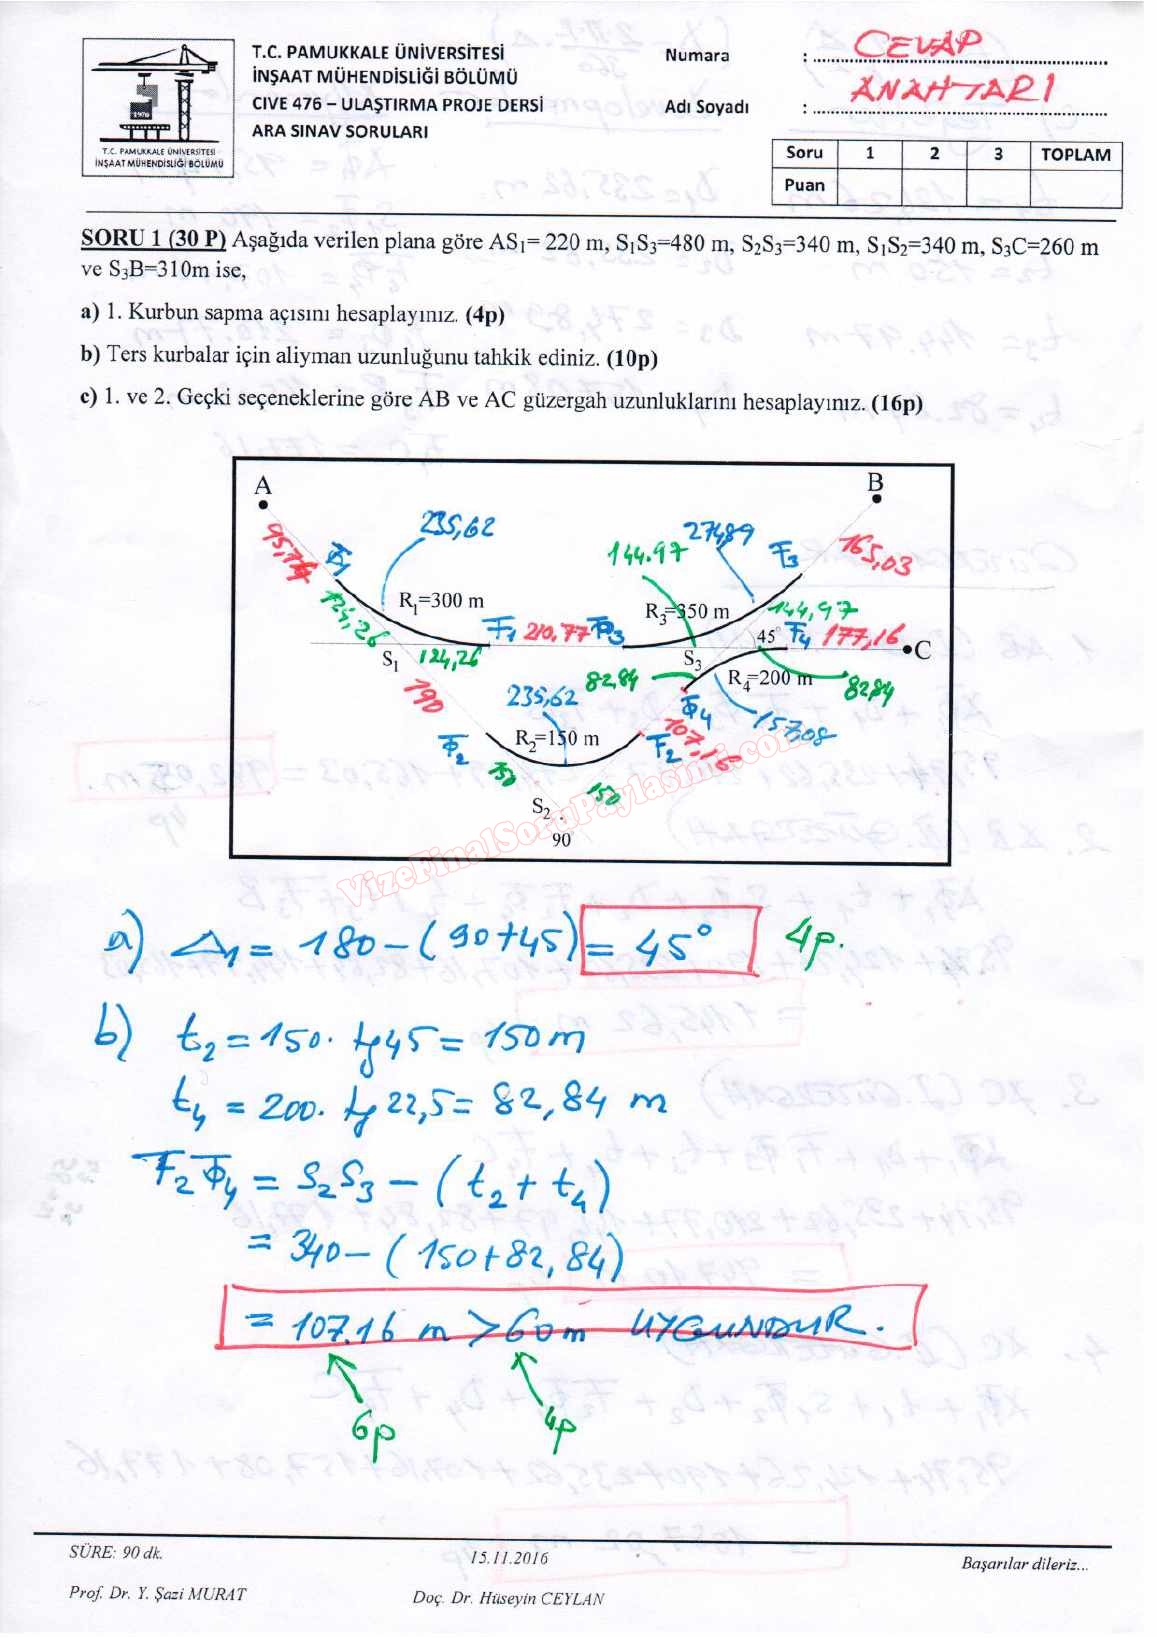 T.C. PAMUKKALE ÜNİVERSİTESİ
İNŞAAT MÜHENDİSLİĞİ BÖLÜMÜ
CIVE 476 – ULAŞTIRMA PROJE DERSİ
ARA SINAV SORULARI
1976
T.C. PAMUKKALE ÜNİVERSİTESİ
İNŞAAT MÜHENDİSLİĞİ BÖLÜMÜ
Numara : CEVAP
Adı Soyadı : ANAHTARI
Soru 1 2 3 TOPLAM
Puan
SORU 1 (30 P) Aşağıda verilen plana göre AS1= 220 m, S1S3=480 m, S2S3=340 m, S1S2=340 m, S3C=260 m
ve S3B=310m ise,
a) 1. Kurbun sapma açısını hesaplayınız. (4p)
b) Ters kurbalar için aliyman uzunluğunu tahkik ediniz. (10p)
c) 1. ve 2. Geçki seçeneklerine göre AB ve AC güzergah uzunluklarını hesaplayınız. (16p)
A
B
235,62
274,89
95,74
Φ1
144.97
F3
165,03
124,26
R1=300 m
R3=350 m
144,97
F1 210,77 Φ3
45° F4 177,16
C
S1 124,26
S3
190
235,62
82,84
R4=200 m
82,84
Φ4
157,08
Φ2
R2=150 m
F2
107,16
150
150
S2
90
VizeFinalSoruPaylasimi.com
a) Δ1 = 180 - (90+45) = 45° 4p.
b) t2 = 150. tg45 = 150m
t4 = 200. tg22,5 = 82,84 m
F2Φ4 = S2S3 - (t2 + t4)
= 340 - (150+82,84)
= 107.16 m > 60m UYGUNDUR.
6p
4p
SÜRE: 90 dk.
15.11.2016
Başarılar dileriz...
Prof. Dr. Y. Şazi MURAT
Doç. Dr. Hüseyin CEYLAN